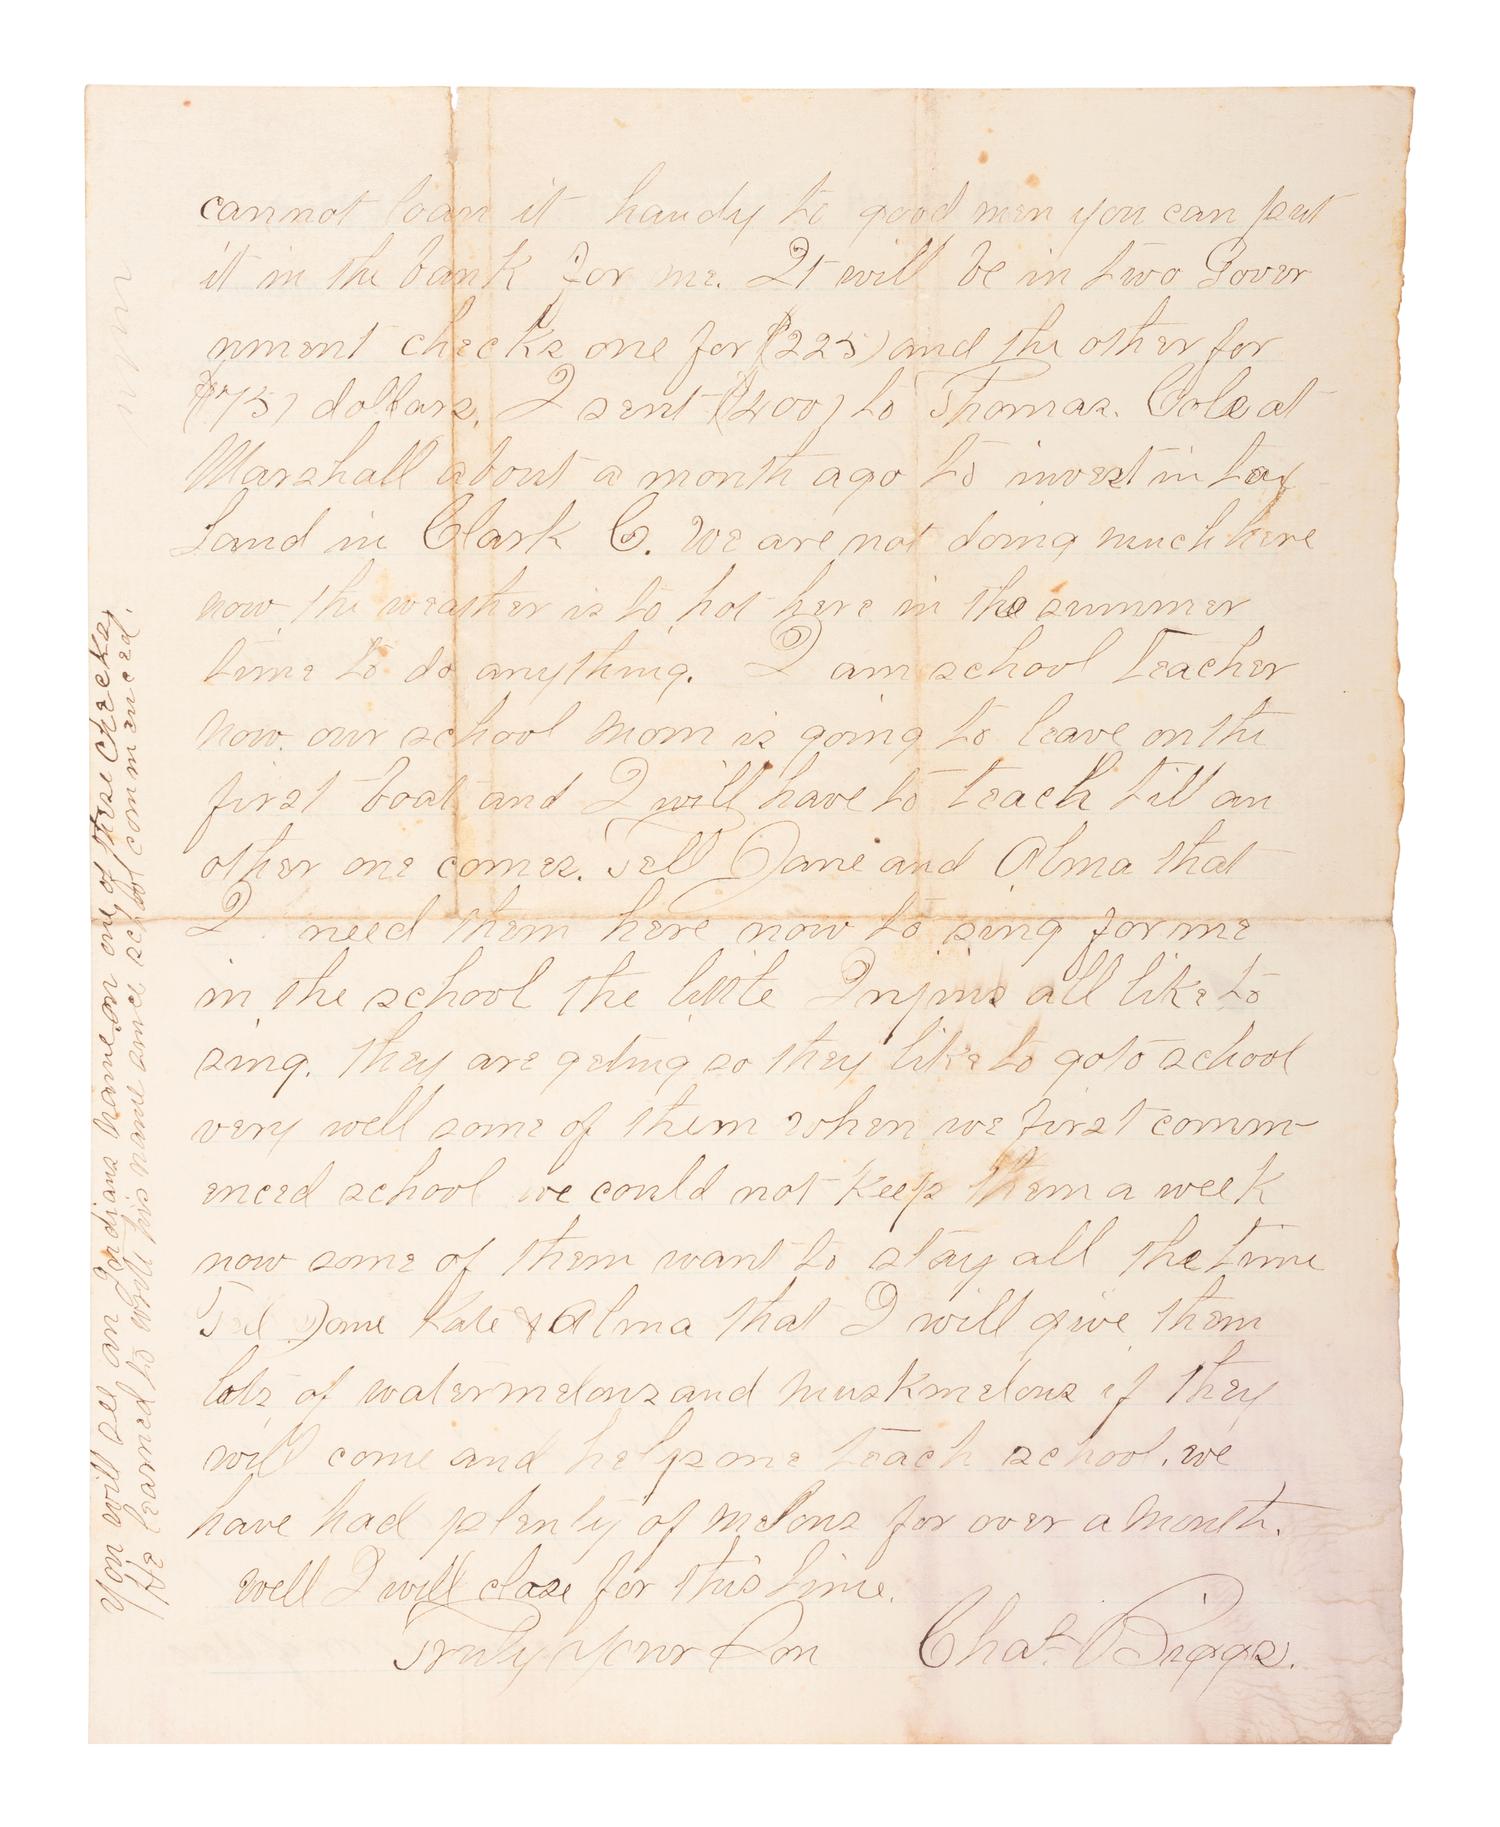 cannot loan it handy to good men you can put
it in the bank for me. It will be in two Gover
nment checks one for ($225) and the other for
($75) dollars. I sent ($200) to Thomas. Cole at
Marshall about a month ago to invest in tax
Land in Clark Co. We are not doing much here
now the weather is to hot here in the summer
time to do anything. I am school Teacher
now. our school mom is going to leave on the
first boat and I will have to teach till an
other one comes. Tell Jane and Alma that
I need them here now to sing for me
in the school the little Injins all like to
sing. they are geting so they like to go to school
very well some of them when we first comm-
enced school we could not keep them a week
now some of them want to stay all the time
Tel Jane Kate & Alma that I will give them
lots of watermelons and muskmelons if they
will come and help me teach school. we
have had plenty of melons for over a month.
well I will close for this time.
Truly Your Son Chas. Biggs.
You will see an Indians name on one of these checks,
He learned to write his name since school commenced.